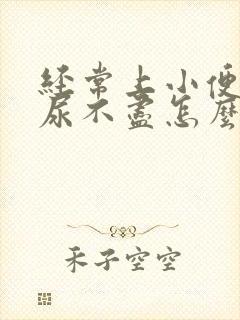 经常上小便
尿不盡怎麼
禾子空空